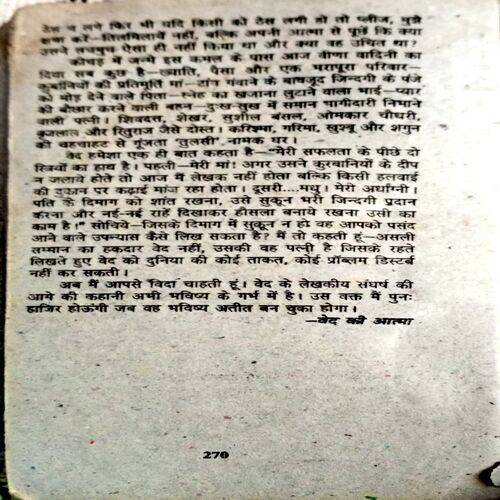 ठेस न लगे फिर भी यदि किसी को ठेस लगी हो तो प्लीज, मुझे
क्षमा करें—तिलमिलायें नहीं, बल्कि अपनी आत्मा से पूछें कि क्या
उसने सचमुच ऐसा ही नहीं किया था और क्या वह उचित था?
कीचड़ में जन्मे इस कमल के पास आज वीणा वादिनी का
दिया सब कुछ है—ख्याति, पैसा और एक भरापूरा परिवार—
कुर्बानियों की प्रतिमूर्ति मां—टांग गंवाने के बावजूद जिन्दगी के पंजे
को मोड़ देने वाले पिता—स्नेह का खजाना लुटाने वाला भाई—प्यार
की बौछार करने वाली बहन—दुःख-सुख में समान भागीदारी निभाने
वाली पत्नी। शिवदत्त, शेखर, सुशील बंसल, ओमकार चौधरी,
बृजलाल और रितुराज जैसे दोस्त। करिश्मा, गरिमा, खुश्बू और शगुन
की चहचाहट से गूंजता 'तुलसी' नामक घर।
वेद हमेशा एक ही बात कहता है—"मेरी सफलता के पीछे दो
स्त्रियों का हाथ है। पहली—मेरी मां! अगर उसने कुरबानियों के दीप
न जलाये होते तो आज मैं लेखक नहीं होता बल्कि किसी हलवाई
की दुकान पर कढ़ाई मांज रहा होता। दूसरी....मधु। मेरी अर्धांग्नी।
पति के दिमाग को शांत रखना, उसे सुकून भरी जिन्दगी प्रदान
करना और नई-नई राहें दिखाकर हौसला बनाये रखना उसी का
काम है।" सोचिये—जिसके दिमाग में सुकून न हो वह आपको पसंद
आने वाले उपन्यास कैसे लिख सकता है? मैं तो कहती हूं—असली
सम्मान का हकदार वेद नहीं, उसकी वह पत्नी है जिसके रहते
लिखते हुए वेद को दुनिया की कोई ताकत, कोई प्रॉब्लम डिस्टर्ब
नहीं कर सकती।
अब मैं आपसे विदा चाहती हूं। वेद के लेखकीय संघर्ष की
आगे की कहानी अभी भविष्य के गर्भ में है। उस वक्त मैं पुनः
हाजिर होऊंगी जब वह भविष्य अतीत बन चुका होगा।
—वेद की आत्मा
270